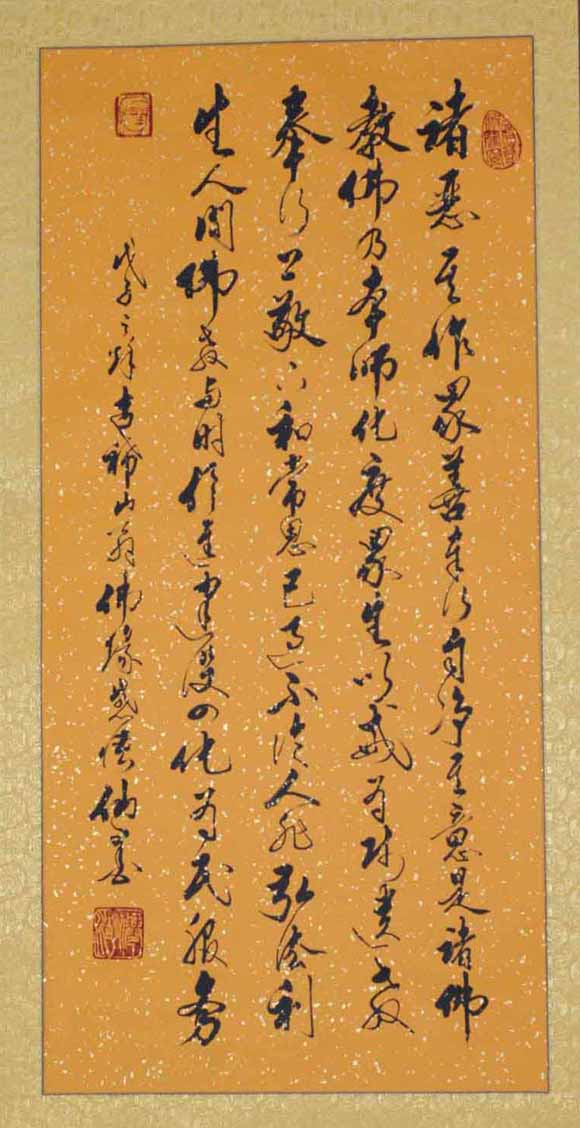 諸惡莫作眾善奉行自淨其意是諸佛
教佛乃本師化度眾生以戒為師遺教
奉行上敬下和常思己過不論人非弘法利
生人間佛教与時俱進四化為民服務
戊子之秋山翁佛緣感悟